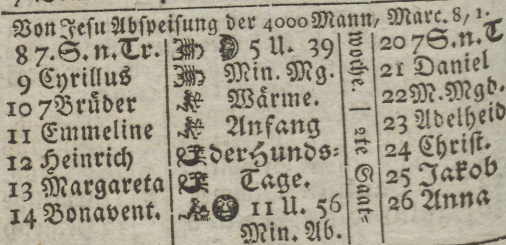 Von Jesu Abspeisung der 4000 Mann, Marc. 8, 1.
8 7. S. n. Tr. 5 U. 39 20 7 S. n. T
9 Cyrillus Min. Mg. 21 Daniel
10 7 Brüder Wärme. 22 M. Mgd.
11 Emmeline Anfang 23 Adelheid
12 Heinrich der Hunds= 24 Christ.
13 Margareta Tage. 25 Jakob
14 Bonavent. 11 U. 56 26 Anna
Min. Ab.
woche. | 2te Saat=